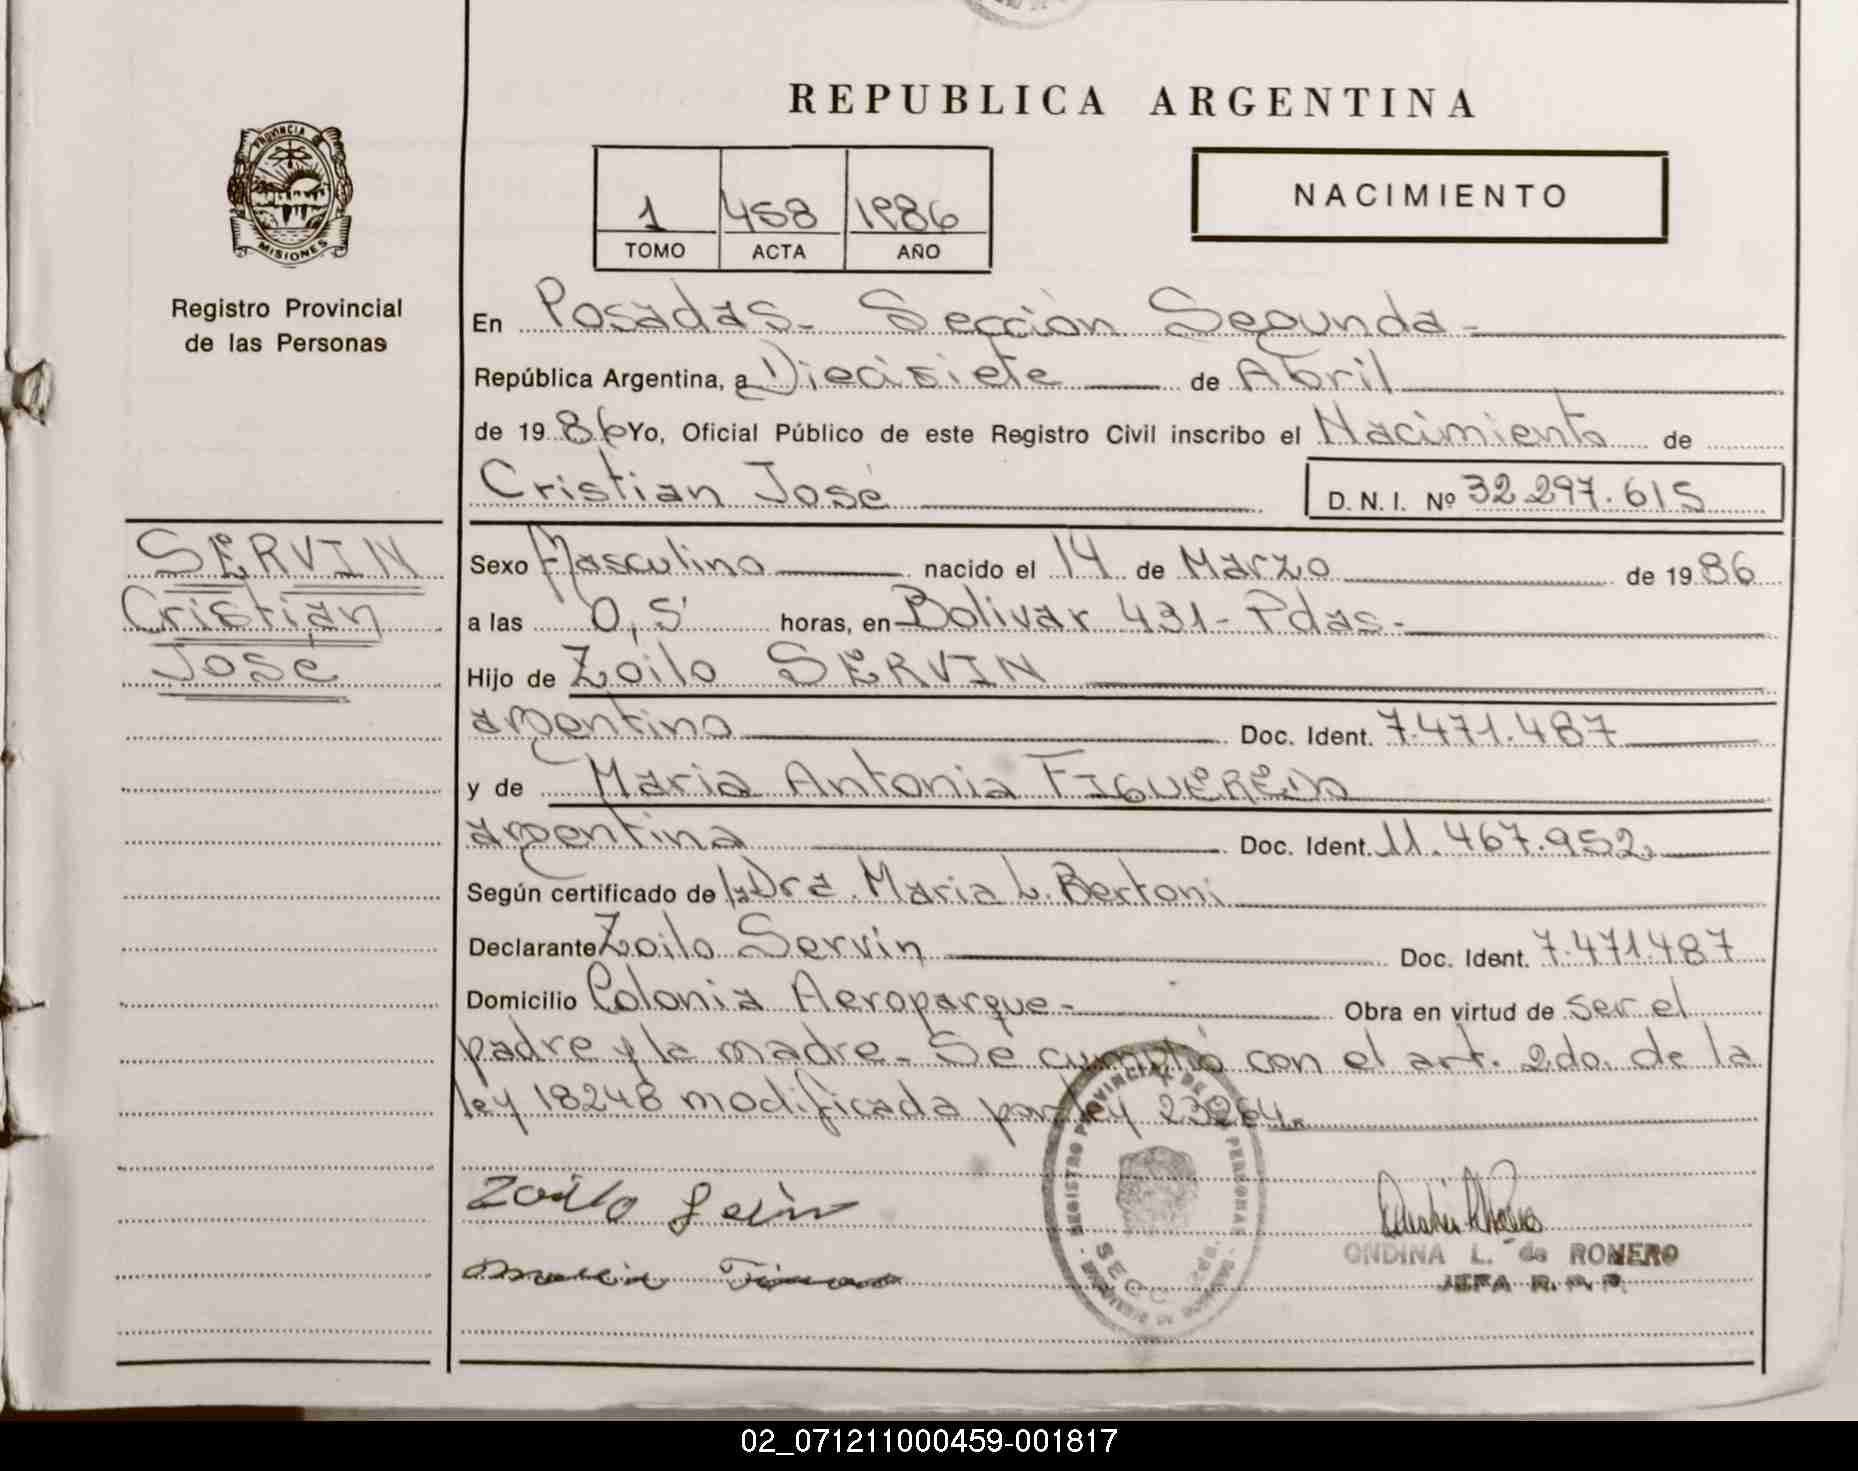 REPUBLICA ARGENTINA
PROVINCIA DE
MISIONES
Registro Provincial
de las Personas
1 458 1986
TOMO ACTA AÑO
NACIMIENTO
En Posadas - Sección Segunda -
República Argentina, a Diecisiete de Abril
de 1986 Yo, Oficial Público de este Registro Civil inscribo el Nacimiento de
Cristian José D.N.I. Nº 32.297.615
SERVIN
Cristian
José
Sexo Masculino nacido el 14 de Marzo de 1986
a las 0,5' horas, en Bolivar 431 - Pdas -
Hijo de Zoilo SERVIN
argentino Doc. Ident. 7.471.487
y de Maria Antonia FIGUEREDO
argentina Doc. Ident. 11.467.952
Según certificado de la Dra. Maria L. Bertoni
Declarante Zoilo Servín Doc. Ident. 7.471.487
Domicilio Colonia Aeroparque - Obra en virtud de ser el
padre y la madre - Se cumplió con el art. 2do. de la
ley 18248 modificada por ley 23264.
REGISTRO PROVINCIAL DE PERSONAS
SECC
Zoilo
ONDINA L. de ROMERO
JEFA R. P. P.
02_071211000459-001817